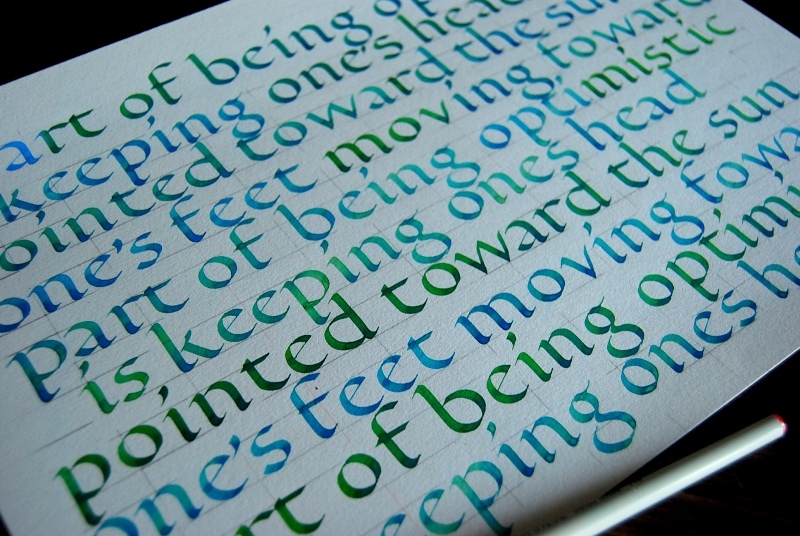 art of being o
keeping one's head
ointed toward the sun
one's feet moving toward
Part of being optimistic
is keeping ones head
pointed toward the sun
one's feet moving towa
rt of being optimi
eeping ones he